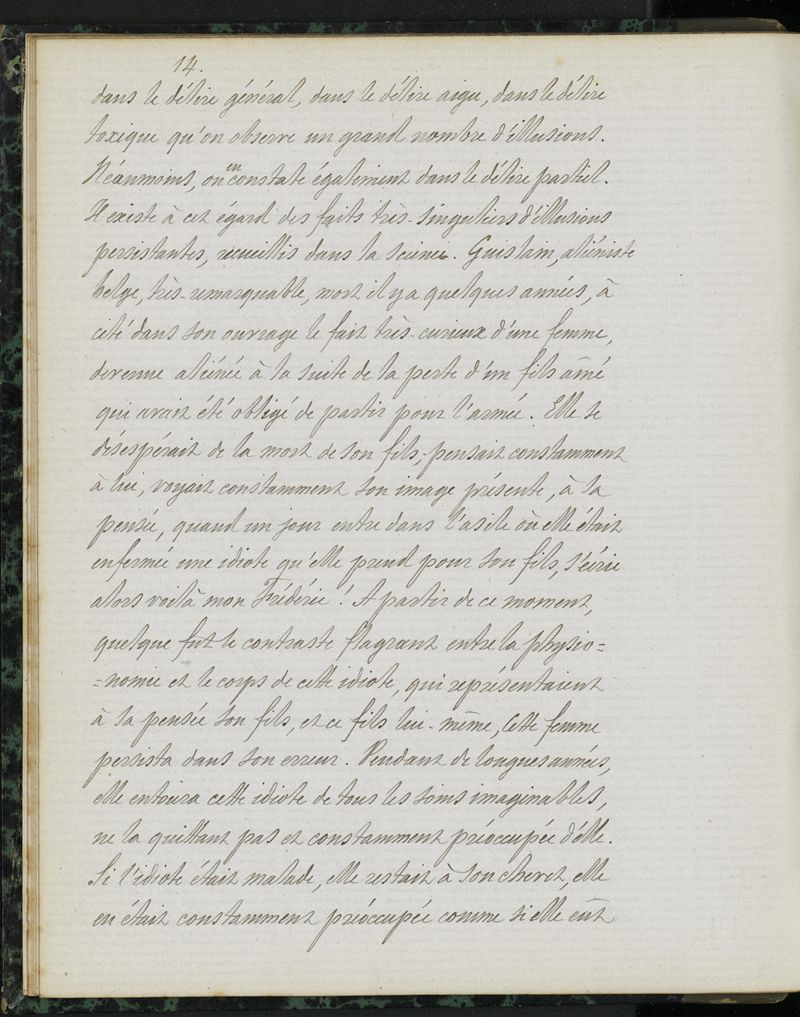 14.
dans le délire général, dans le délire aigu, dans le délire
toxique qu'on observe un grand nombre d'illusions.
Néanmoins, on en constate également dans le délire partiel.
Il existe à cet égard des faits très-singuliers d'illusions
persistantes, recueillis dans la science. Guislain, aliéniste
belge, très-remarquable, mort il y a quelques années, à
cité dans son ouvrage le fait très-curieux d'une femme,
devenue aliénée à la suite de la perte d'un fils aîné
qui avait été obligé de partir pour l'armée. Elle se
désespérait de la mort de son fils, pensait constamment
à lui, voyait constamment son image présente, à sa
pensée, quand un jour entre dans l'asile où elle était
enfermée une idiote qu'elle prend pour son fils, s'écrie
alors voilà mon Frédéric! A partir de ce moment,
quelque fut le contraste flagrant entre la physio=
=nomie et le corps de cette idiote, qui représentaient
à sa pensée son fils, et ce fils lui-même, cette femme
persista dans son erreur. Pendant de longues années,
elle entoura cette idiote de tous les soins imaginables,
ne la quittant pas et constamment préoccupée d'elle.
Si l'idiote était malade, elle restait à son chevet, elle
en était constamment préoccupée comme si elle eût